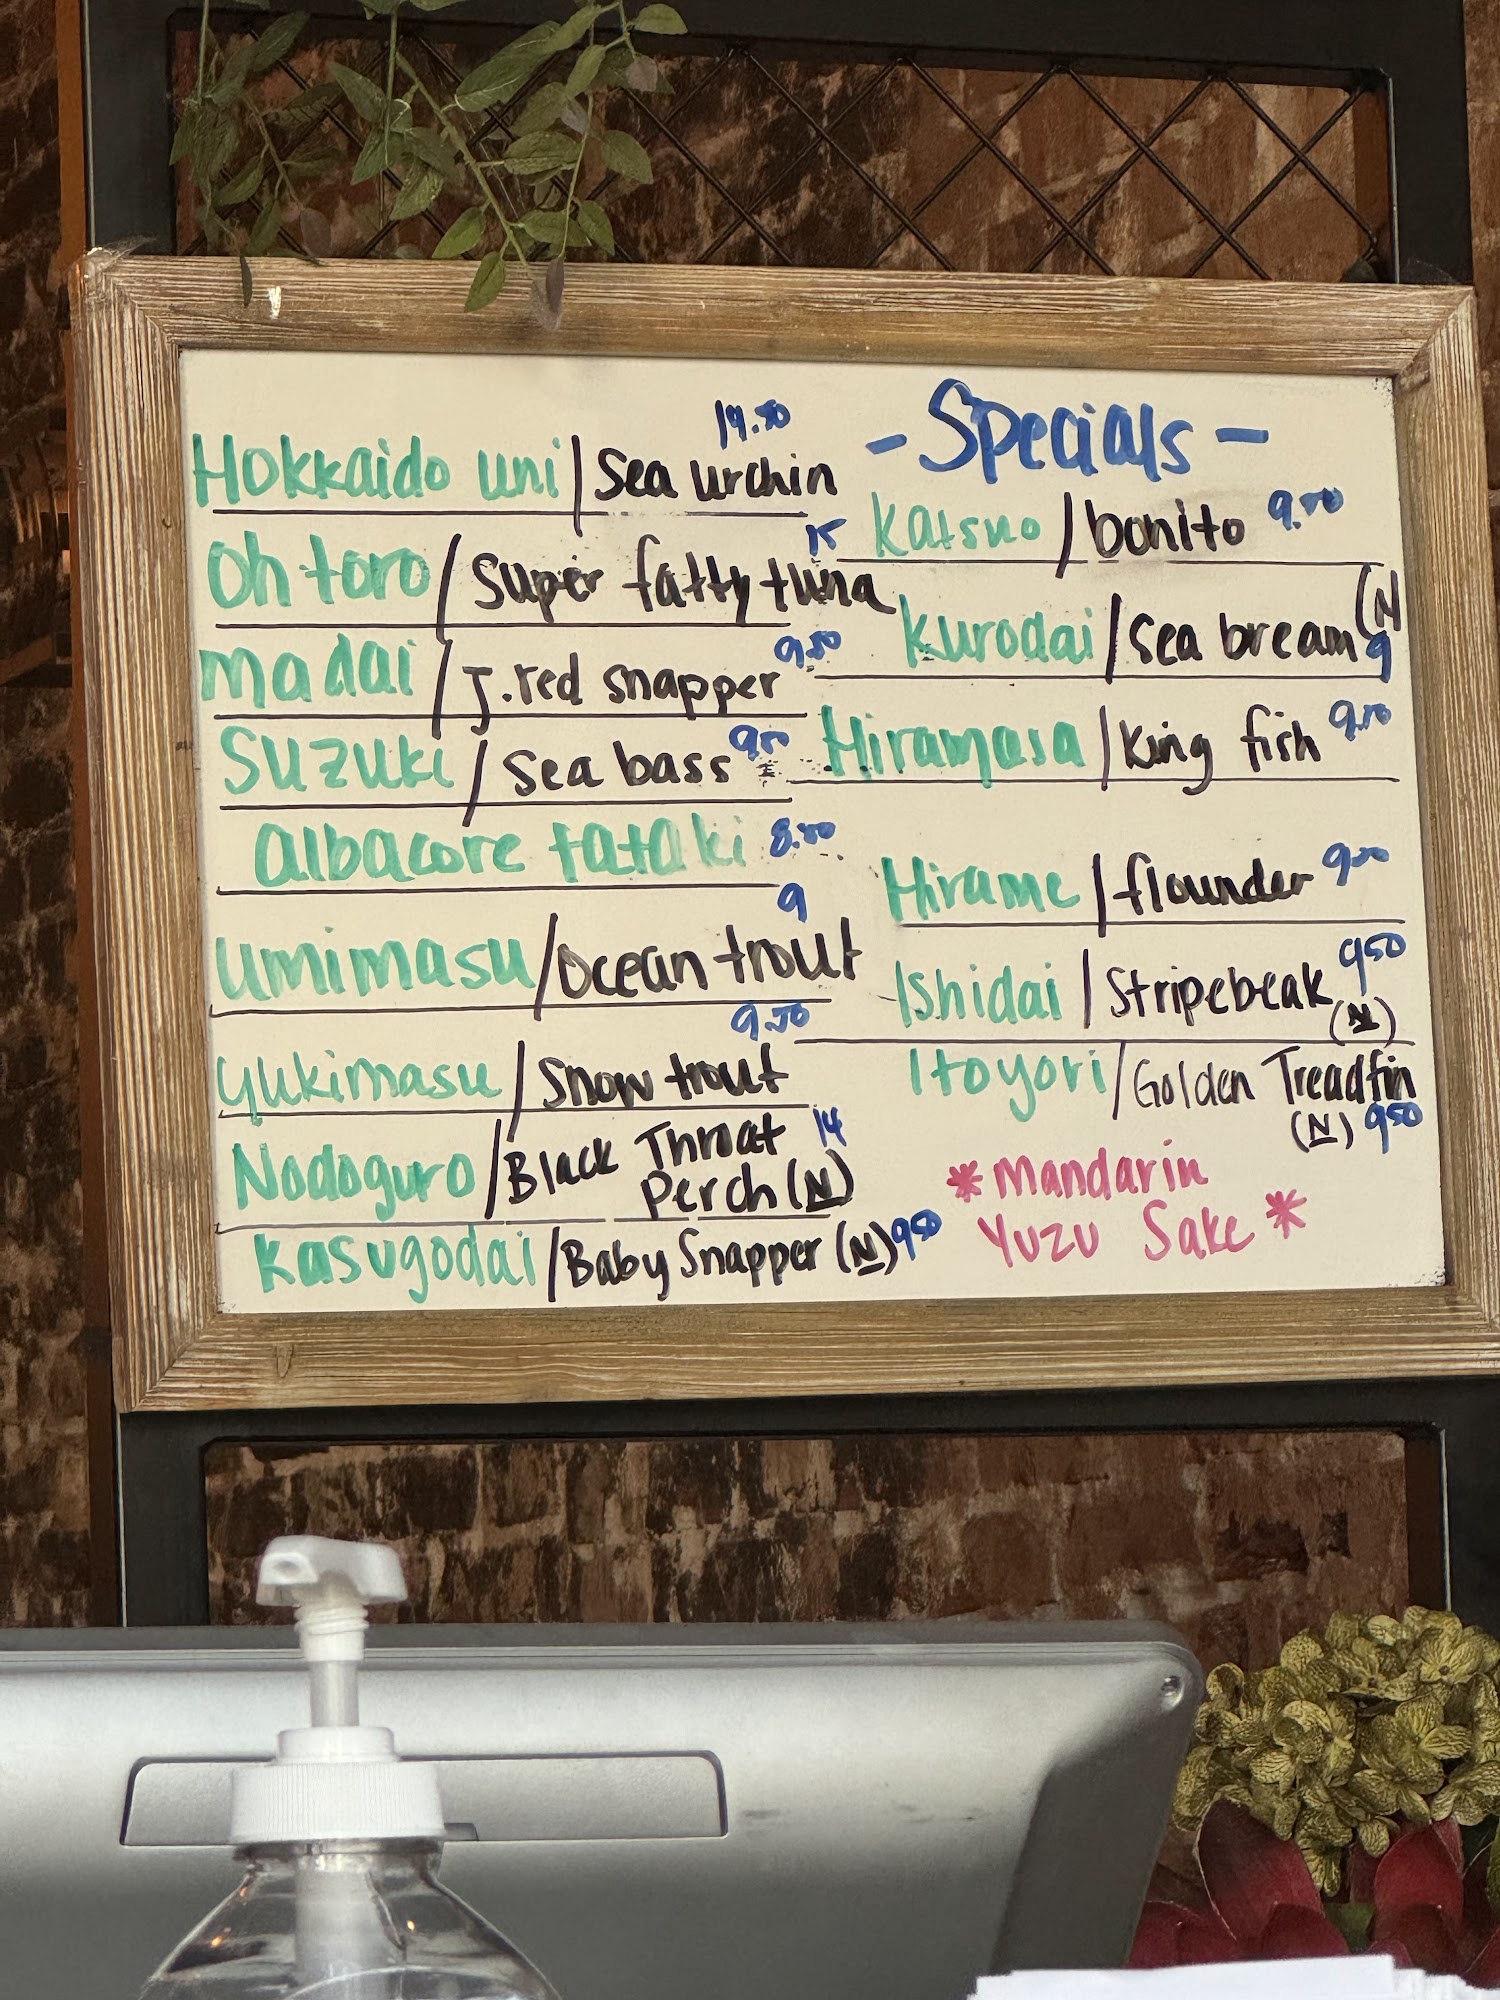 14.50
Hokkaido uni / Sea urchin
15
Oh toro / Super fatty tuna
Madai / J.red snapper 9.50
Suzuki / Sea bass 9.50
albacore tataki 8.50
9
Umimasu / Ocean trout
9.50
Yukimasu / Snow trout
Nodoguro / Black Throat 14
Perch (N)
Kasugodai / Baby Snapper (N) 950
- Specials -
Katsuo / bonito 9.50
Kurodai / Sea bream (N
9
Hiramasa / King fish 9.50
Hirame / flounder 9.50
Ishidai / Stripebeak 950
(N)
Itoyori / Golden Treadfin
(N) 950
* Mandarin
Yuzu Sake *